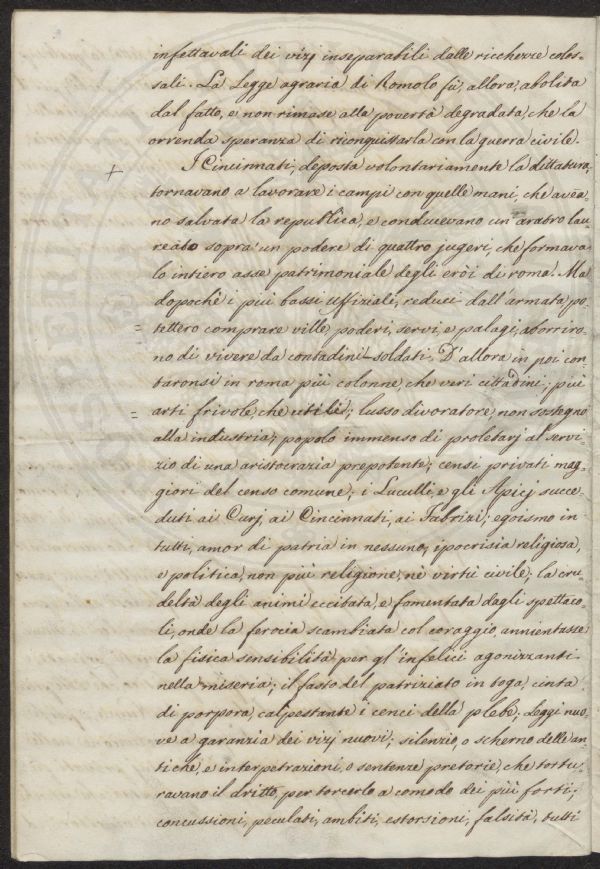 infettavali dei vizj inseparabili dalle ricchezze colos-
sali. La Legge agraria di Romolo fù, allora, abolita
dal fatto, e non rimase alla povertà degradata, che la
orrenda speranza di riconquistarla con la guerra civile.
+ I Cincinnati, deposta volontariamente la dittatura,
tornavano a lavorare i campi con quelle mani, che avea-
no salvata la republica, e conducevano un' aratro lau-
reato sopra un podere di quattro jugeri, che formava
lo intiero asse patrimoniale degli eròi di roma. Ma
dopochè i più bassi uffiziali, reduci dall'armata, po-
= tettero comprare ville, poderi, servi, e palagi, aborriro-
no di vivere da contadini-soldati. D'allora in poi con-
taronsi in roma più colonne, che veri cittadini; più
= arti frivole che utili; lusso divoratore, non sostegno
alla industria; popolo immenso di proletarj al servi-
zio di una aristocrazia prepotente; censi privati mag-
giori del censo comune; i Luculli, e gli Apicj succe-
duti ai Curj, ai Cincinnati, ai Fabrizi; egoismo in
tutti, amor di patria in nessuno; ipocrisia religiosa,
e politica, non più religione, nè virtù civile; la cru-
deltà degli animi eccitata, e fomentata dagli spettaco-
li, onde la ferocia scambiata col coraggio, annientasse
la fisica sensibilità per gl'infelici agonizzanti
nella miseria; il fasto del patriziato in toga, cinta
di porpora, calpestante i cenci della plebe; leggi nuo-
ve a garanzia dei vizj nuovi; silenzio, o scherno delle an-
tiche, e interpetrazioni, o sentenze pretorie, che tortu-
ravano il dritto, per torcerlo a comodo dei più forti;
concussioni, peculati, ambiti, estorsioni, falsità, tutti